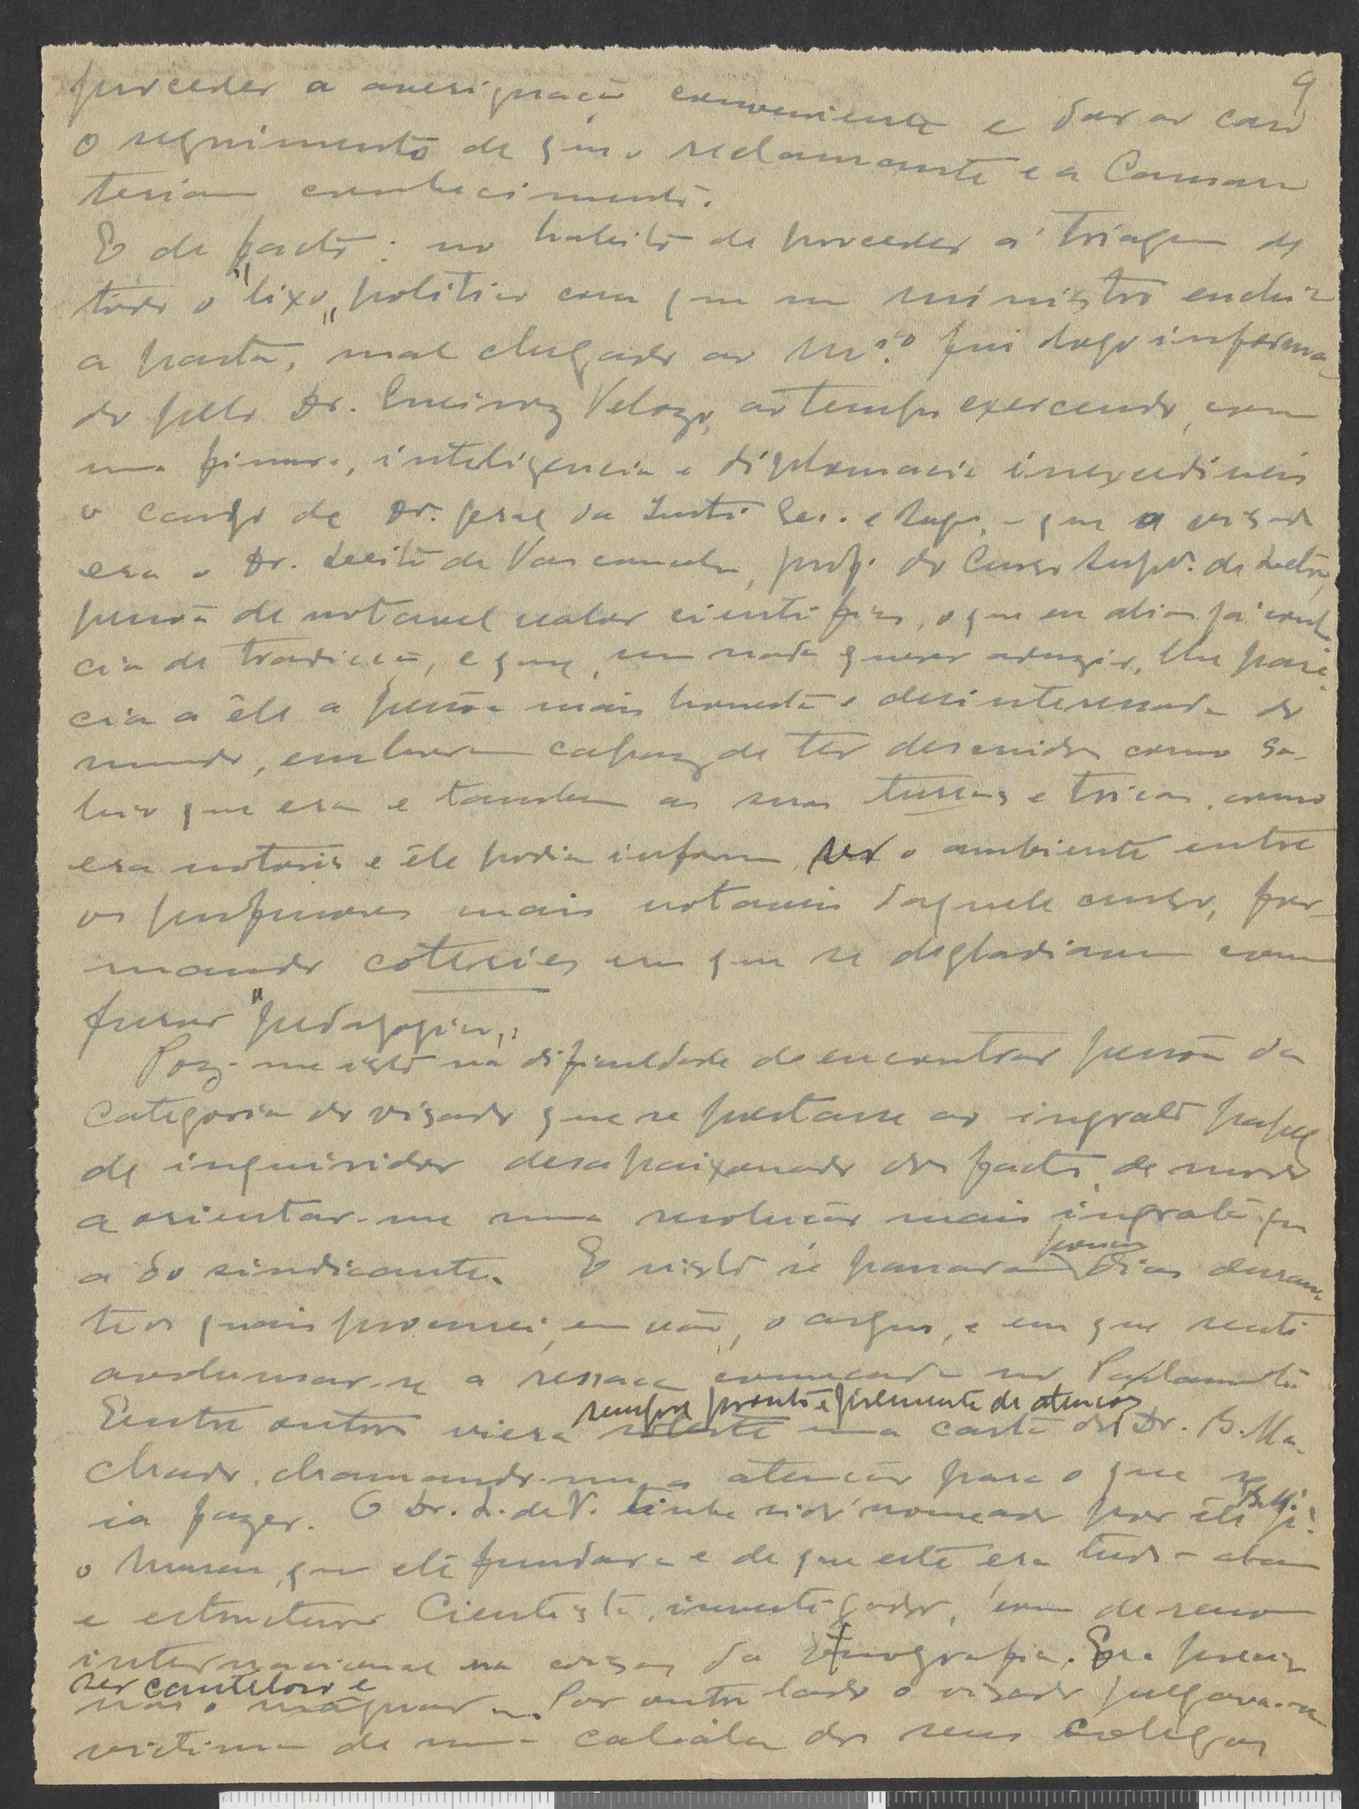 9
proceder a averiguação conveniente e dar ao caso
o seguimento de que o reclamante e a Camara
teriam conhecimento.
E de facto: no habito de proceder á triagem de
todo o "lixo" politico com que um ministro enche
a pasta, mal chegado ao Mº. fui logo informa-
do pelo Dr. Queiroz Velozo, ao tempo exercendo, com
uma finura, inteligencia e diplomacia inexcediveis
o cargo de Dr. geral da Instr. Sec. e Sup., - que o visado
era o Dr. Leite de Vasconcelos, prof. do Curso Supr. de Letras,
pessoa de notavel valor cientifico, o que eu aliás já conhe-
cia de tradicção, e que, sem nada querer aduzir, lhe pare-
cia a êle a pessoa mais honesta e desinteressada do
mundo, embora capaz de ter descuidos como sa-
bio que era e tambem as suas turras e tricas, como
era notorio e êle podia informar, ser o ambiente entre
os professores mais notaveis daquele curso, for-
mando coteries em que se degladiavam com
furor "pedagogico".
Poz-me isto na dificuldade de encontrar pessoa da
categoria do visado que se prestasse ao ingrato papel
de inquiridor desapaixonado dos factos, de modo
a orientar-me numa resolução mais ingrata que
a do sindicante. E nisto se passaram poucos dias duran-
te os quais procurei, em vão, o argus, e em que senti
avolumar-se a ressaca começada no Parlamento
Entre outros viera sempre pronto e firemente de atencões uma carta do Dr. B. Ma-
chado, chamando-me a atenção para o que se
ia fazer. O Dr. L. de V. tinha sido nomeado por êle B.M. pª.
o Museu, que êle fundara e de que este era tudo - alma
e estructura Cientista, investigador, com de renome
internacional na cousas da Etnografia. Era preciso
ser cauteloso e não o magoar. Por outro lado o visado julgava-se
victima de uma cabala dos seus colegas